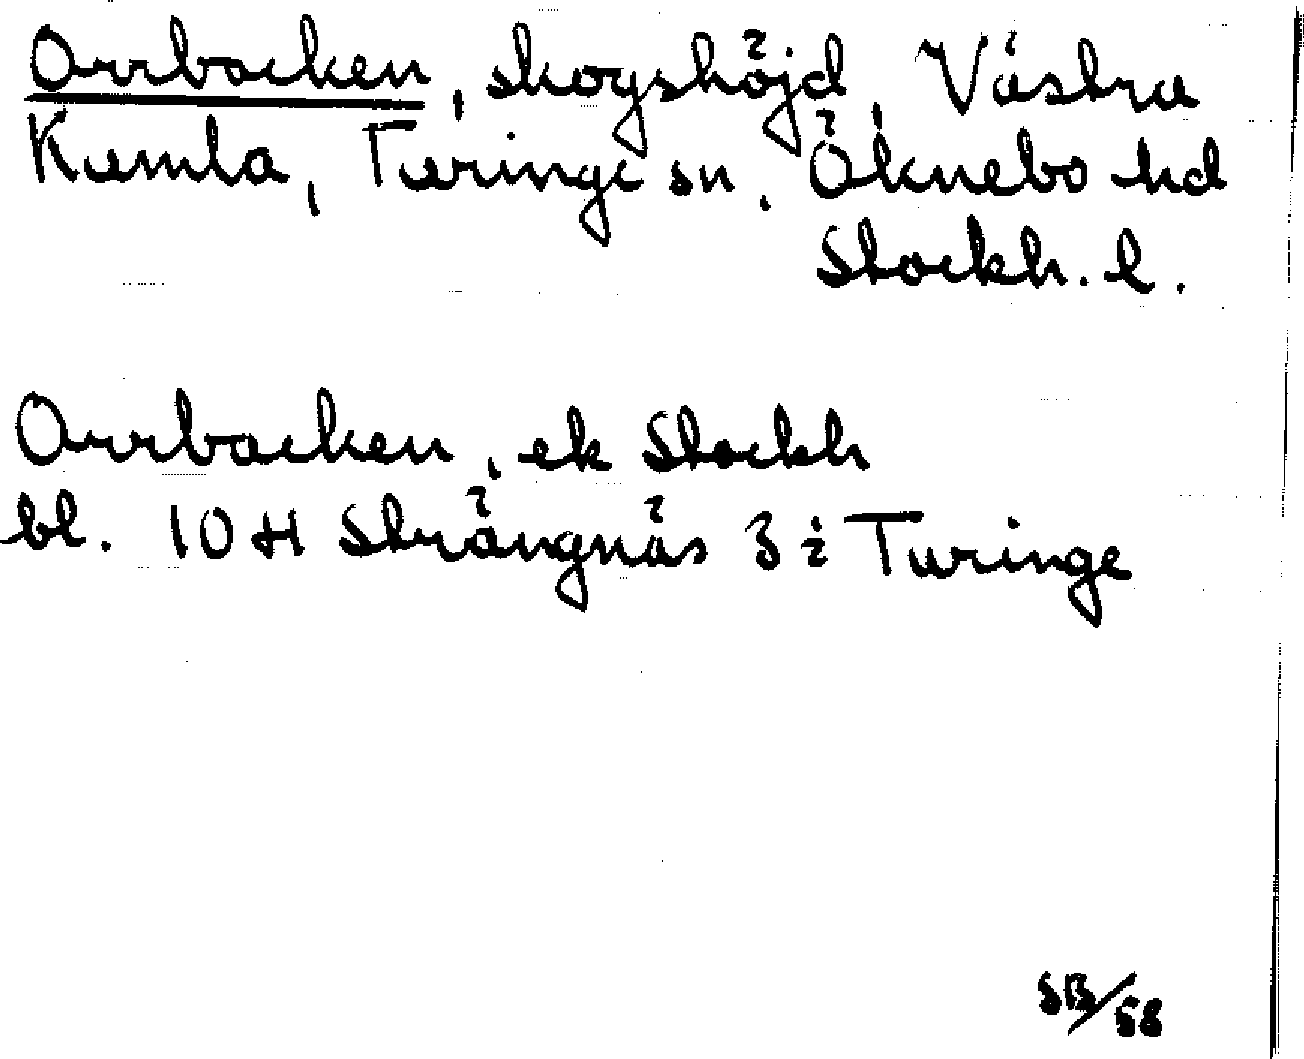 Orrbacken, skogshöjd, Västra
Kumla, Turinge sn, Öknebo hd
Stockh. l.
Orrbacken, ek Stockh
bl. 10 H Strängnäs 3 i Turinge
SB/58